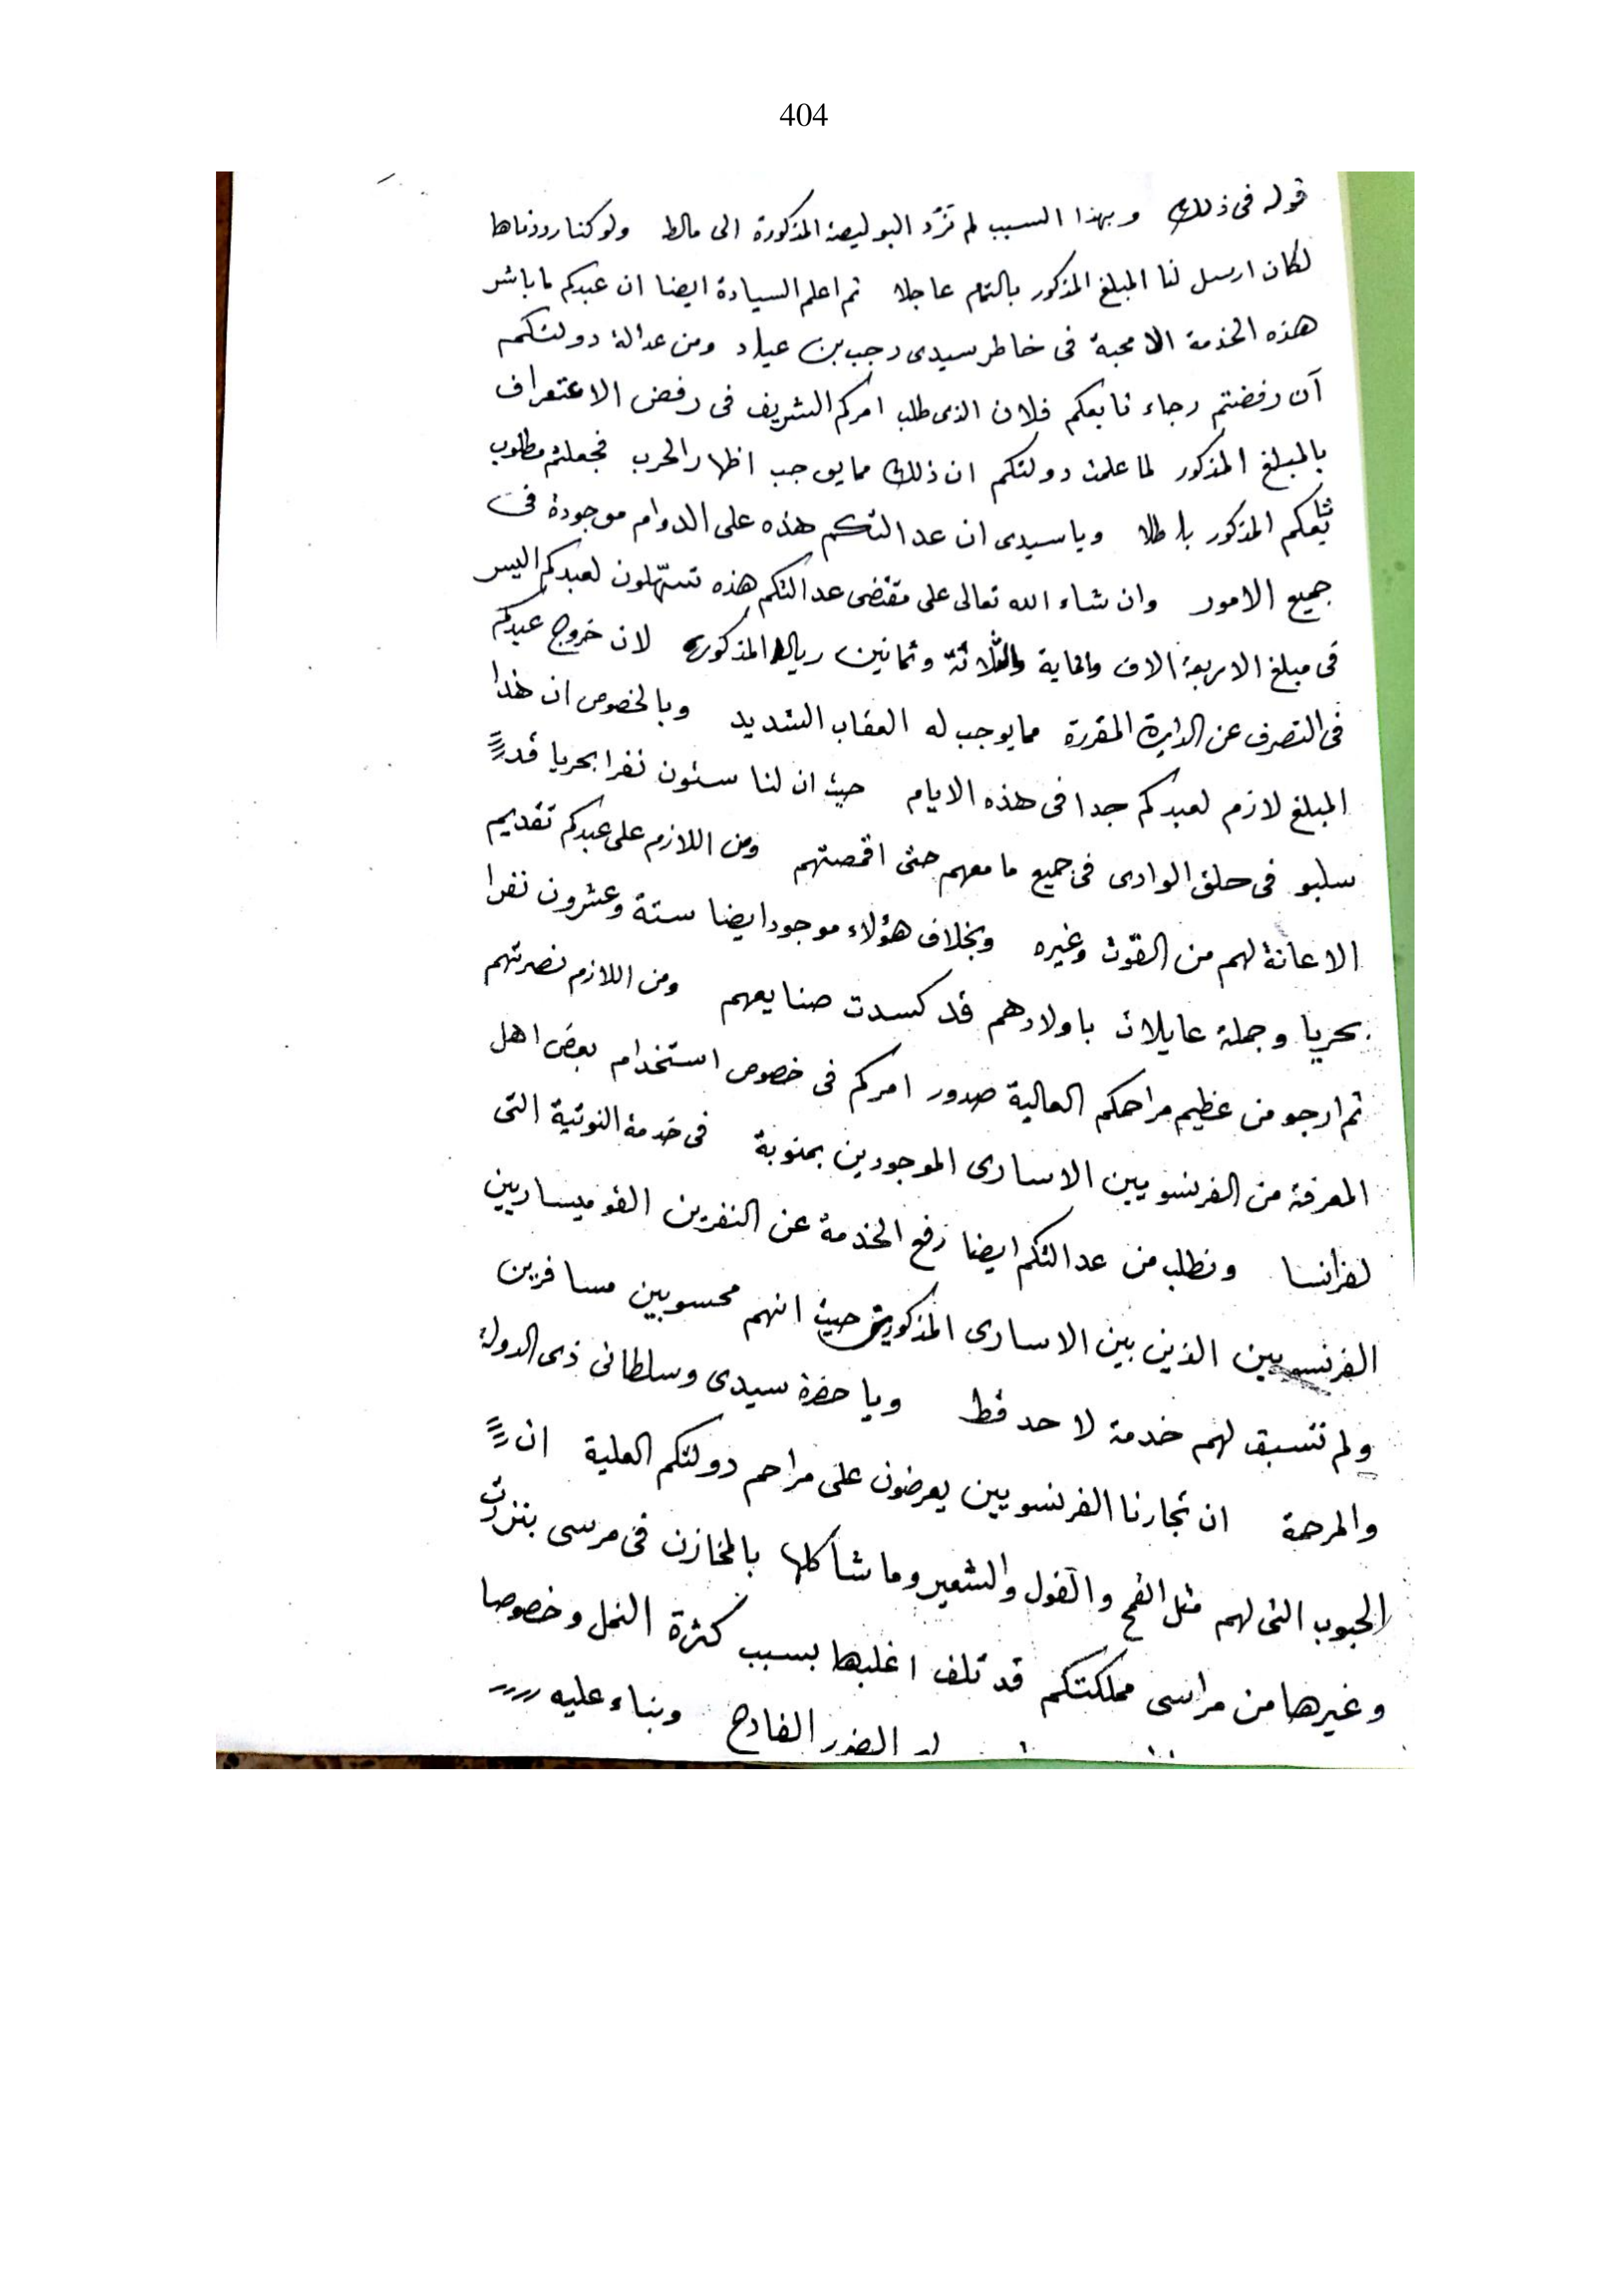 404
قوله فى ذلك وبهذا السبب لم تردّ البوليصة المذكورة الى مالطـ ولو كنا رددناها
لكان ارسل لنا المبلغ المذكور بالتمام عاجلا ثم اعلم السيادة ايضا ان عبدكم ما باشر
هذه الخدمة الا محبة فى خاطر سيدى رجب بن عياد ومن عدالة دولتكم
آن رفضتم رجاء تابعكم فلان الذى طلب امركم الشريف فى رفض الاعتراف
بالمبلغ المذكور لما علمت دولتكم ان ذلك مما يوجب اظهار الحرب فجعلتم مطلوب
تابعكم المذكور باطلا ويا سيدى ان عدالتكم هذه على الدوام موجودة فى
جميع الامور وان شاء الله تعالى على مقتضى عدالتكم هذه تسهّلون لعبدكم اليسر
فى مبلغ الاربعة الاف والماية والثلاثة وثمانين ريالا المذكورة لان خروج عبدكم
فى التصرف عن الدايرة المقررة مما يوجب له العقاب الشديد وبالخصوص ان هذا
المبلغ لازم لعبدكم جدا فى هذه الايام حيث ان لنا ستون نفرا بحريا قد
سلبو فى حلق الوادى فى جميع ما معهم حتى اقمصتهم ومن اللازم على عبدكم تقديم
الاعانة لهم من القوت وغيره وبخلاف هؤلاء موجود ايضا ستة وعشرون نفرا
بحريا وجملة عايلات باولادهم قد كسدت صنايعهم ومن اللازم نصرتهم
ثم ارجو من عظيم مراحمكم العالية صدور امركم فى خصوص استخدام بعض اهل
المعرفة من الفرنسويين الاسارى الموجودين بمنوبة فى خدمة النوتية التى
لفرانسا ونطلب من عدالتكم ايضا رفع الخدمة عن النفرين القوميساريين
الفرنسيين الذين بين الاسارى المذكورين حيث انهم محسوبين مسافرين
ولم تسبق لهم خدمة لاحد قط ويا حضرة سيدى وسلطانى ذى الدولة
والمرحمة ان تجارنا الفرنسويين يعرضون على مراحم دولتكم العلية ان
الحبوب التى لهم مثل القمح والفول والشعير وما شاكلها بالمخازن فى مرسى بنزرت
وغيرها من مراسى مملكتكم قد تلف اغلبها بسبب كثرة النمل وخصوصا
الضرر الفادح وبناء عليه